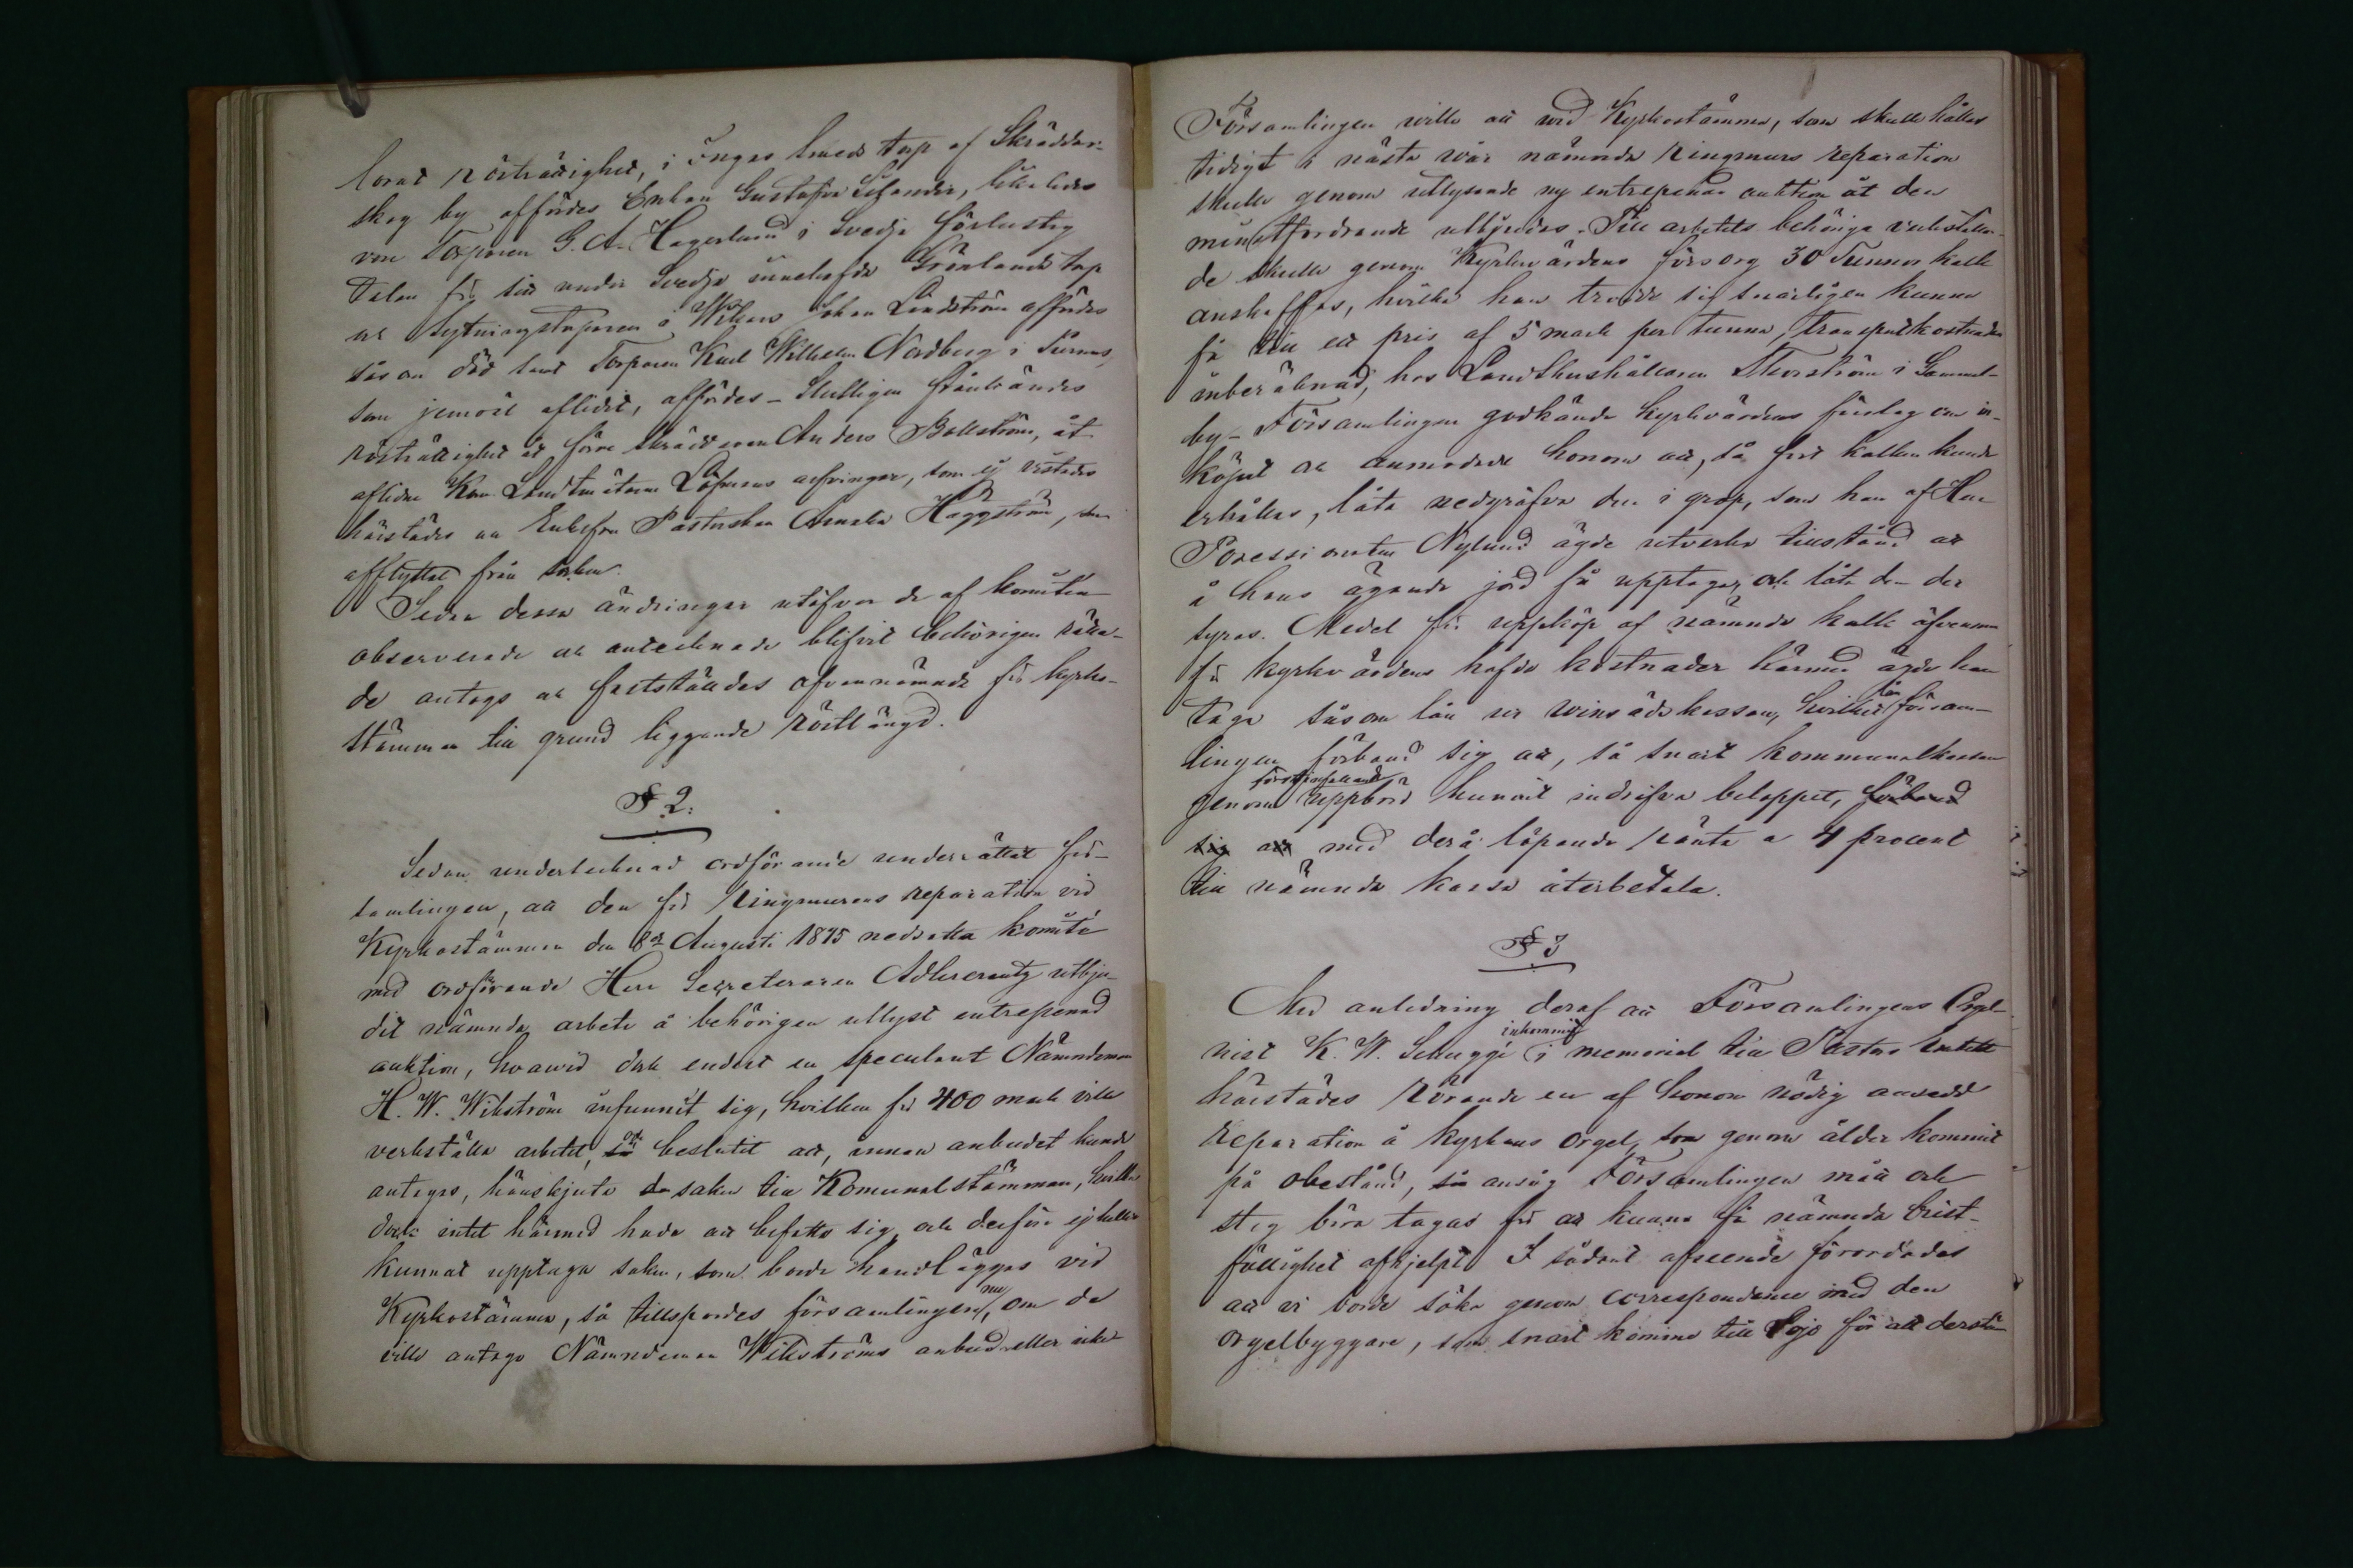 lorat rösträttighet, i Ingas smeds torp af Skräddar-
skog by affördes Enkan Gustafva Lifander, likaledes
von Torparen G. A. Hagerlund i Svedja förlustig
talan för sitt under Svedja innehafda Grönlands torp
och sytningstorparen i Wikars Johan Lindström affördes
såsom död samt Torparen Karl Wilhelm Nordberg i
som jemväl aflidit, affördes – Slutligen frånkändes
rösträttighet åt förre skräddaren Anders Bollström, åt
aflidne Kom. Landtmätaren Löfmans arfvingar, som ej vistades
härstädes och Enkefru Pastorskan Amalia Häggström, som
afflyttat från orten.
Sedan dessa ändringar utöfver de af komitén
observerade och antecknade blifvit behörigen rätta-
de antogs och fastställdes ofvannämnde för kyrko-
stämman till grund liggande röstlängd.
§ 2.
Sedan undertecknad ordförande underrättat för-
samlingen, att den för Ringmurens reparation vid
Kyrkostämman den 8de Augusti 1875 nedsatta komité
med ordförande Herr Secreteraren Adlercreutz utbju-
dit nämnda arbete å behörigen utlyst entreprenad
auktion, hvarvid dock endast en speculant Nämndeman
H. W. Wikström infunnit sig, hvilken för 400 mark ville
verkställa arbetet, så och beslutit att, innan anbudet kunde
antagas, hänskjuta saken till Komunalstämman, hvilken
dock intet härmed hade att befatta sig och derföre ej heller
kunnat upptaga saken, som borde handläggas vid
Kyrkostämma, så tillspordes församlingen nu, om de
ville antaga Nämndeman Wikströms anbud eller icke
Församlingen ville att vid Kyrkostämma, som skulle hållas
tidigt i nästa vår nämnda Ringmurs reparation
skulle genom utlysande ny entreprenad auktion åt den
minstfordrande utbjudas. Till arbetets behöriga verkställan-
de skulle genom Kyrkovärdens försorg 30 Tunnor kalk
anskaffas, hvilka han trodde sig snarligen kunna
få till ett pris af 5 mark per tunna, transportkostnaden
inberäknad, hos Landthushållaren Thorström i Gammel-
by – Församlingen godkände kyrkvärdens förslag om in-
köpet och anmodade honom att, så fort kalken kunde
erhållas, låta nedgräfva den i grop, som han af Herr
Possessionaten Nylund ägde utverka tillstånd att
å hans ägande jord få upptaga och låta den der
Medel för uppköp af nämnde kalk äfvensom
för kyrkovärdens hafda kostnader härmed ägde han
taga såsom lån ur vinsädskassan, hvilket lån försam-
lingen förband sig att, så snart kommunalkassan
genom förstinfallande uppbörd hunnit indrifva beloppet, förband
sig att med derå löpande ränta a 4 procent
till nämnda kassa återbetala.
§ 3
Med anledning deraf att Församlingens Orgel-
nist K. W. inkommit i memorial till Pastors Embetet
härstädes rörande en af honom nödig ansedd
reparation å kyrkans orgel, som genom ålder kommit
på obestånd, så ansåg Församlingen mått och
steg böra tagas för att kunna få nämnda brist-
fällighet afhjelpt. I sådant afseende förordades
att vi borde söka genom correspondence med den
orgelbyggare, som snart komme till Lojo för att derstä-